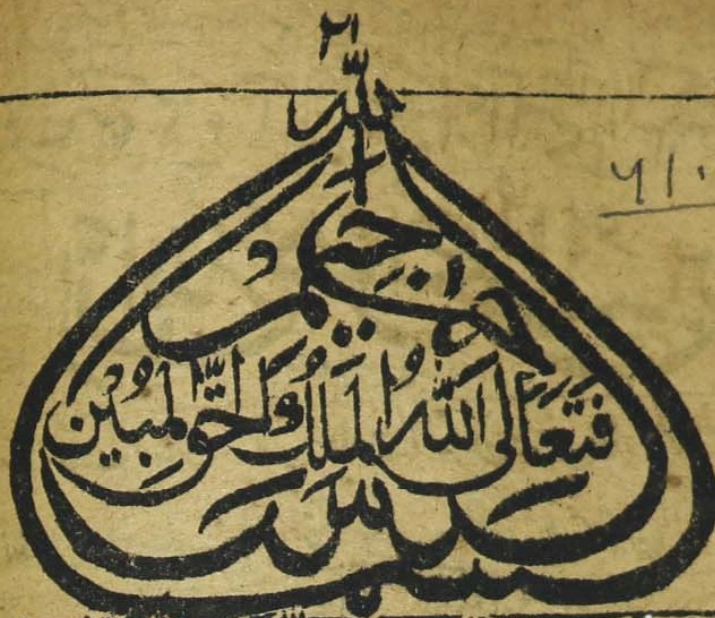 ٢١
بسم الله الرحمن الرحيم
فَتَعَالَى اللهُ المَلِكُ وَالحَقُّ المُبِين